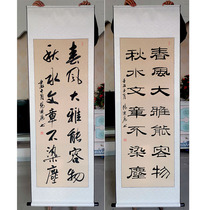 春风大雅能容物
秋水文章不染塵
春風大雅能容物
秋水文章不染塵